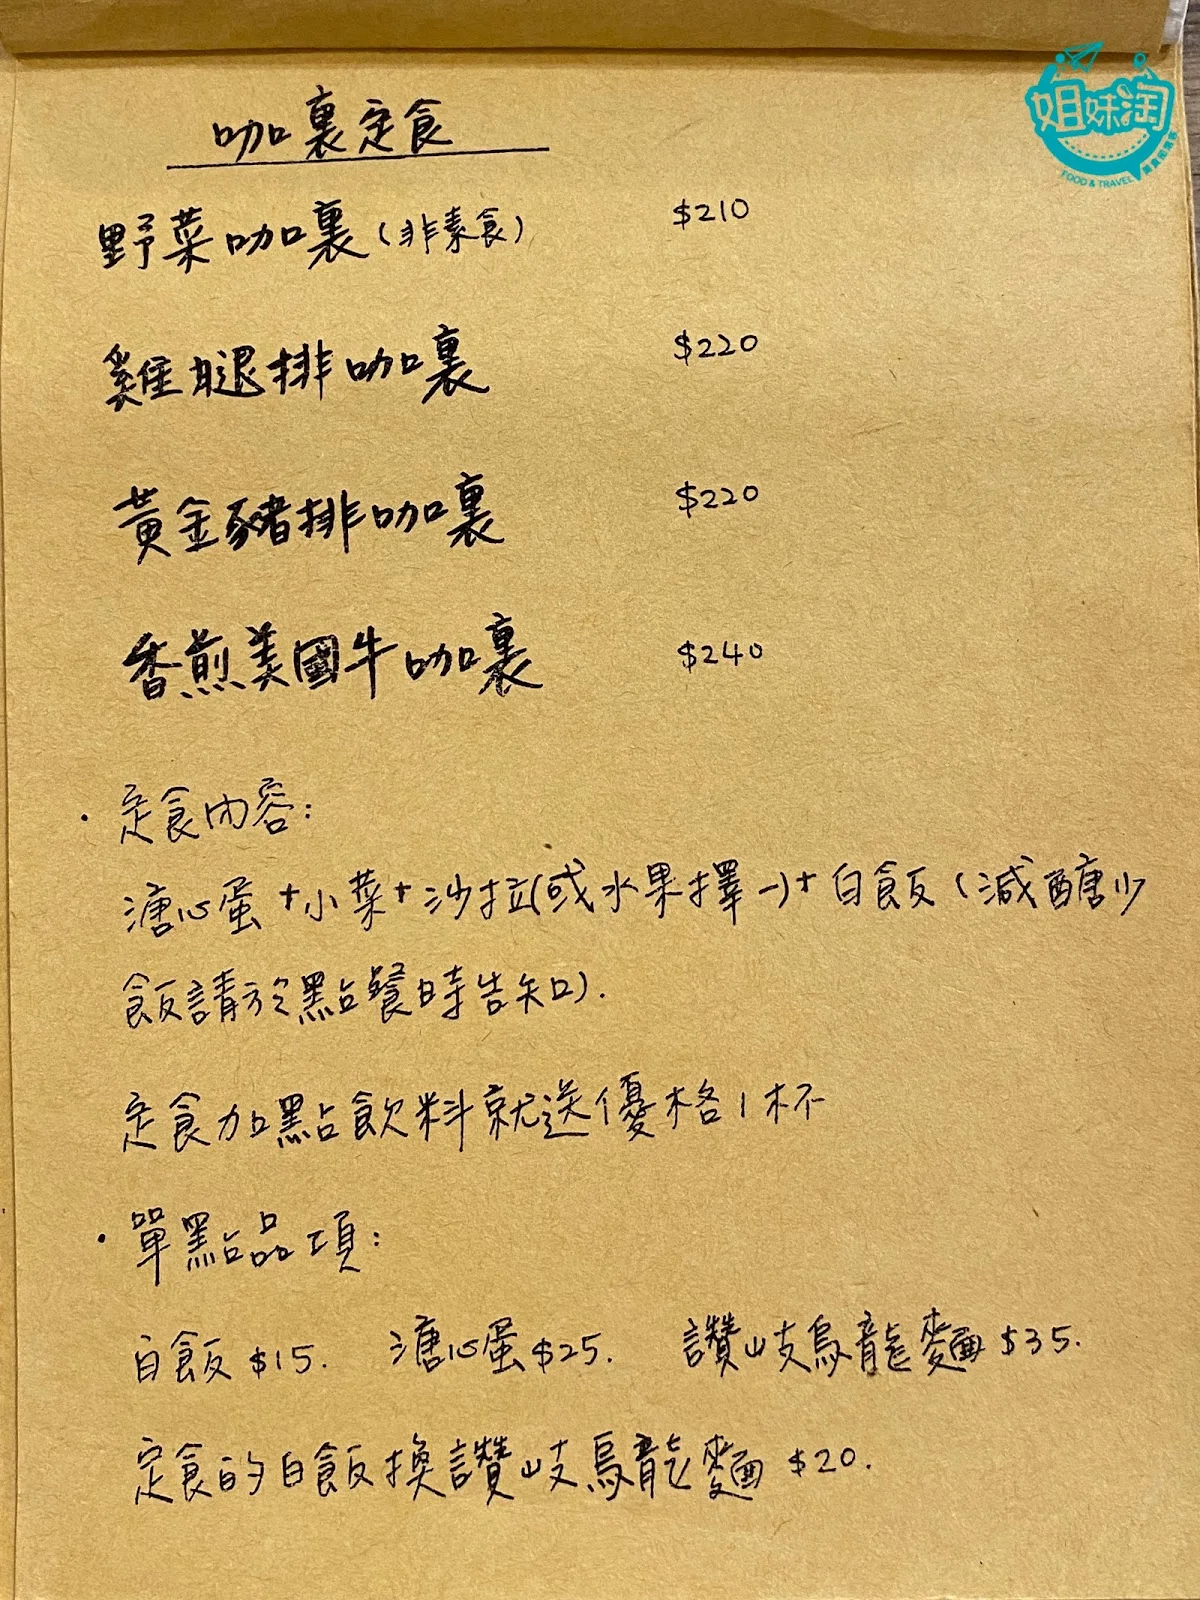 姐妹淘
FOOD & TRAVEL
咖裏定食
野菜咖裏(非素食) $210
雞腿排咖裏 $220
黃金豬排咖裏 $220
香煎美國牛咖裏 $240
·定食內容:
溏心蛋+小菜+沙拉(或水果擇一)+白飯(減醣少
飯請於點餐時告知).
定食加點飲料就送優格1杯
·單點品項:
白飯$15. 溏心蛋$25. 讚岐烏龍麵$35.
定食的白飯換讚岐烏龍麵 $20.